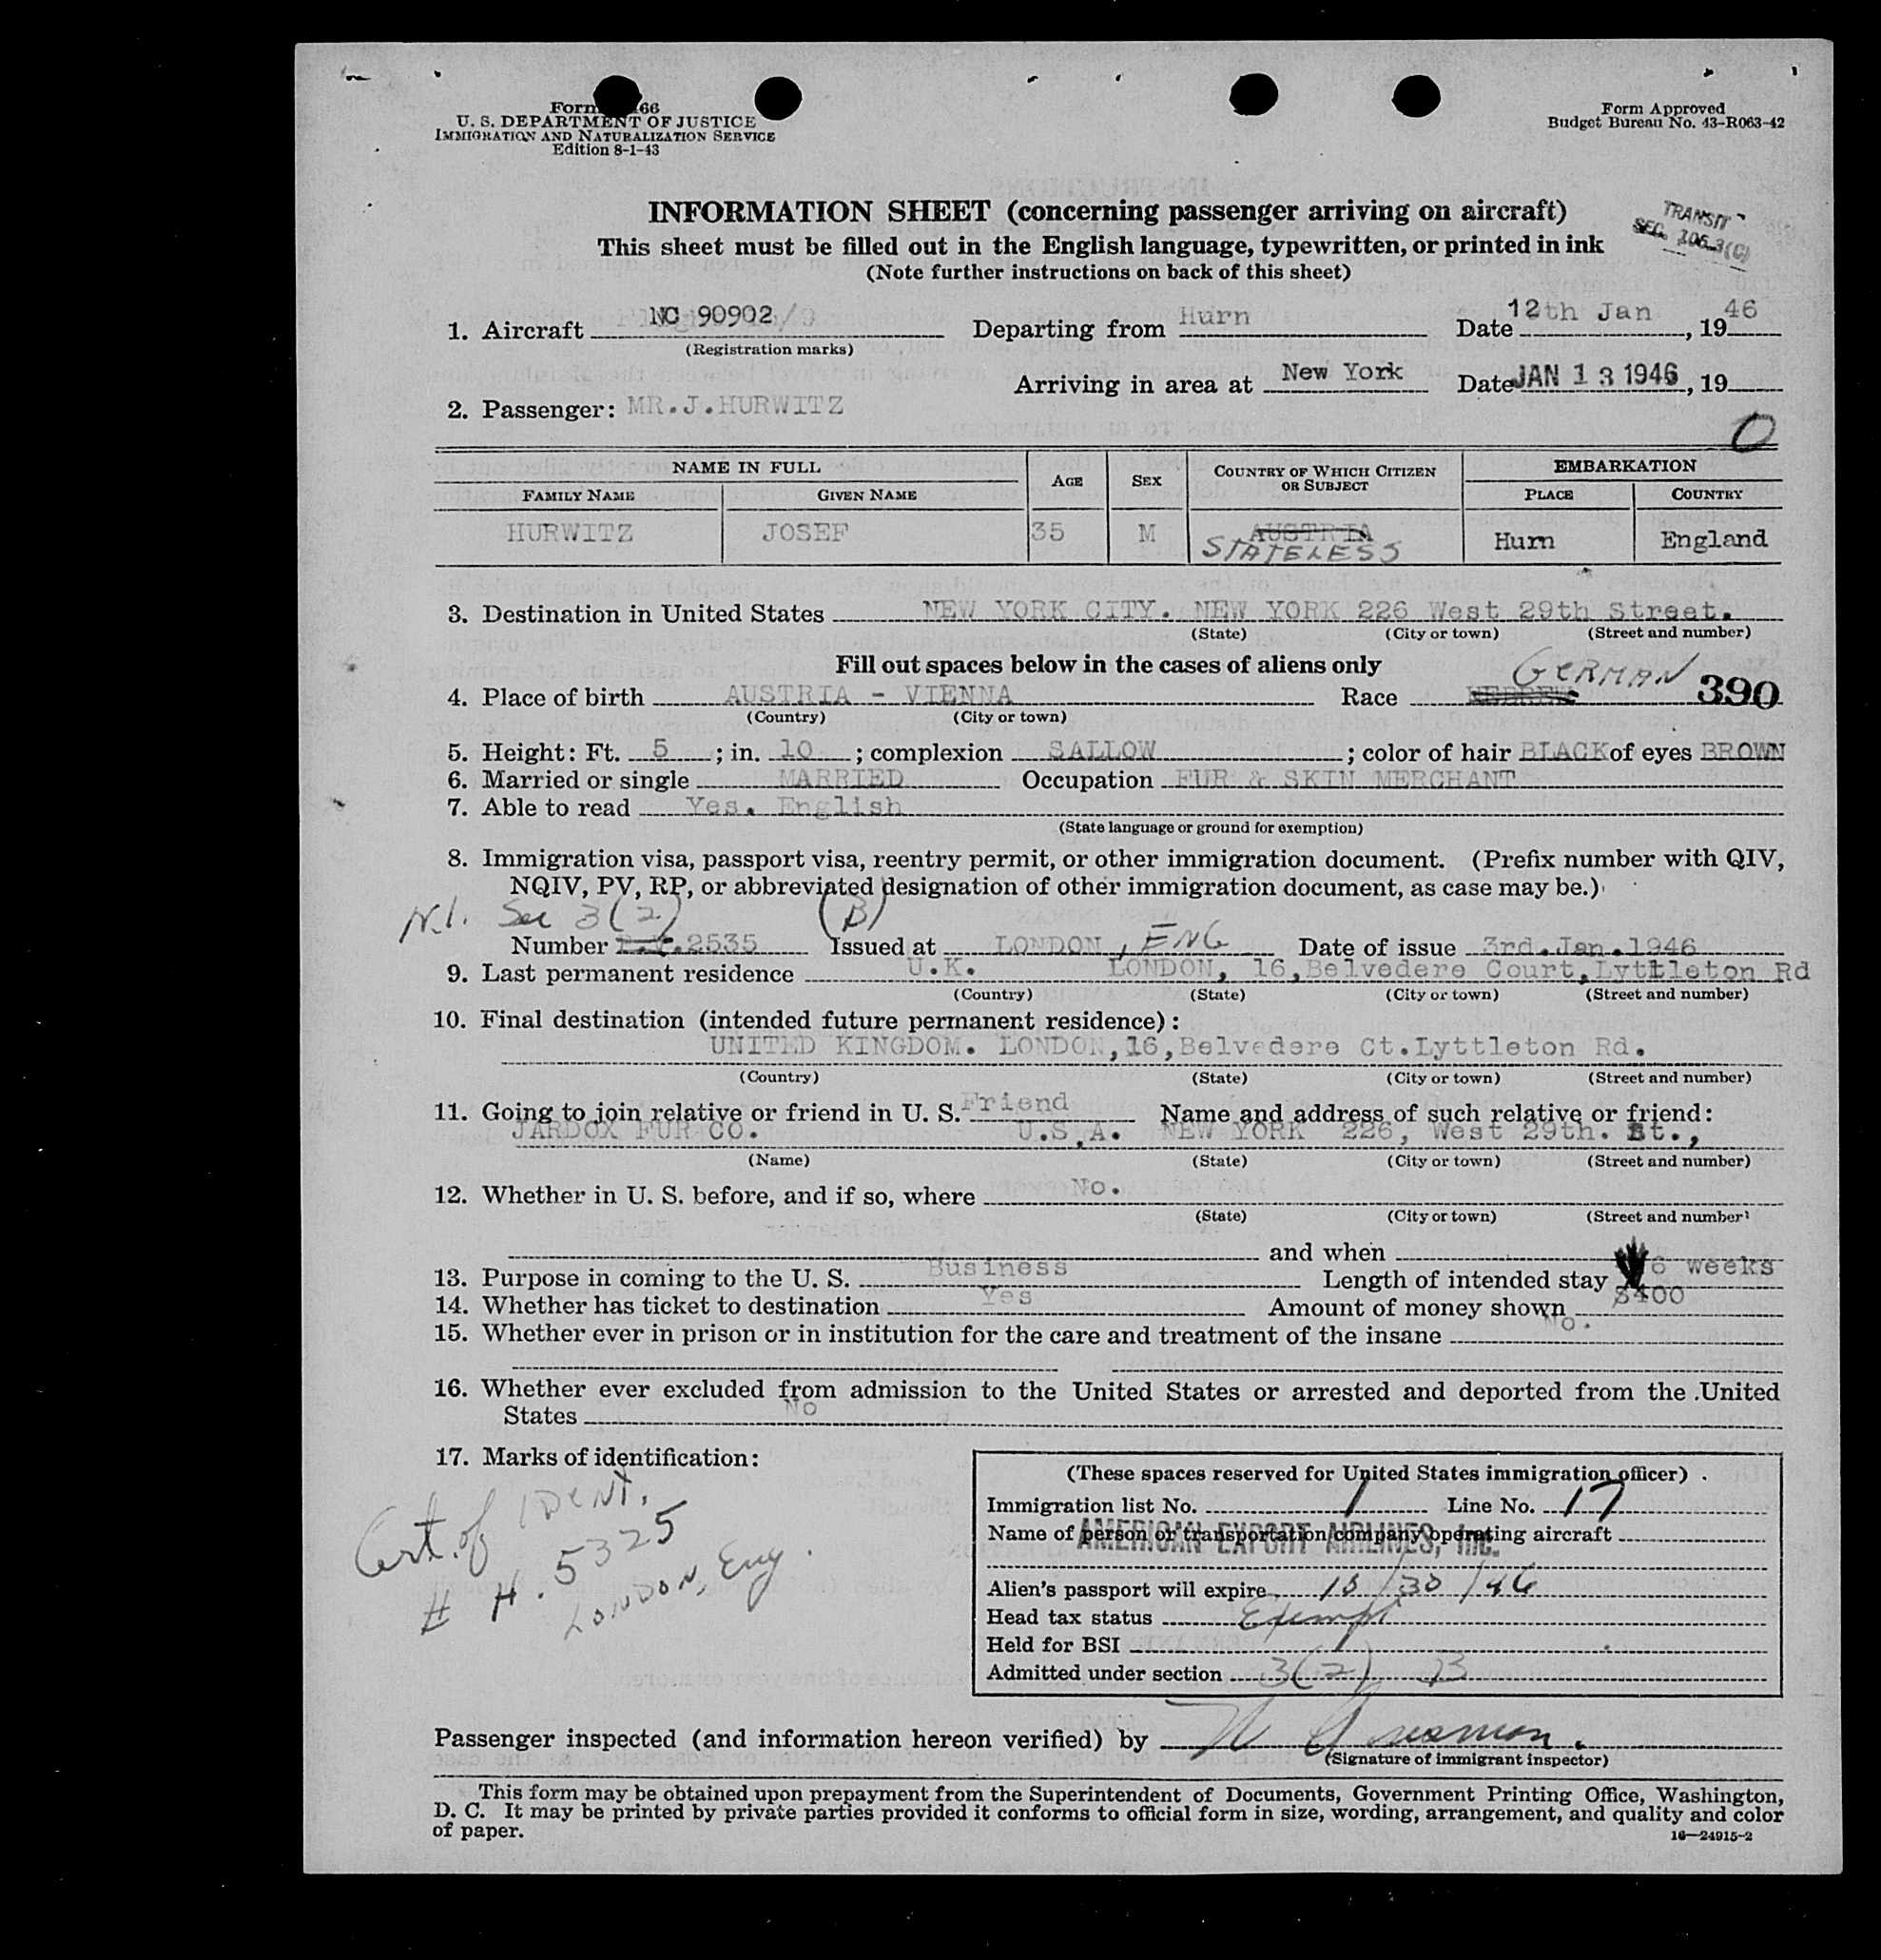 Form 66
U. S. DEPARTMENT OF JUSTICE
IMMIGRATION AND NATURALIZATION SERVICE
Edition 8-1-43
Form Approved
Budget Bureau No. 43-R063-42
INFORMATION SHEET (concerning passenger arriving on aircraft)
This sheet must be filled out in the English language, typewritten, or printed in ink
(Note further instructions on back of this sheet)
TRANSIT
SEC. 106.3(C)
1. Aircraft NC 90902 Departing from Hurn Date 12th Jan, 1946
(Registration marks)
Arriving in area at New York Date JAN 13 1946, 19
2. Passenger: MR.J.HURWITZ
0
NAME IN FULL AGE SEX COUNTRY OF WHICH CITIZEN OR SUBJECT EMBARKATION
FAMILY NAME GIVEN NAME PLACE COUNTRY
HURWITZ JOSEF 35 M AUSTRIA Hurn England
STATELESS
3. Destination in United States NEW YORK CITY. NEW YORK 226 West 29th Street.
(State) (City or town) (Street and number)
Fill out spaces below in the cases of aliens only
4. Place of birth AUSTRIA - VIENNA Race HEBREW GERMAN 390
(Country) (City or town)
5. Height: Ft. 5; in. 10; complexion SALLOW; color of hair BLACK of eyes BROWN
6. Married or single MARRIED Occupation FUR & SKIN MERCHANT
7. Able to read Yes. English
(State language or ground for exemption)
8. Immigration visa, passport visa, reentry permit, or other immigration document. (Prefix number with QIV,
NQIV, PV, RP, or abbreviated designation of other immigration document, as case may be.)
N.I. Sec 3(2) (B)
Number P.V.2535 Issued at LONDON, ENG Date of issue 3rd.Jan.1946
9. Last permanent residence U.K. LONDON, 16,Belvedere Court,Lyttleton Rd
(Country) (State) (City or town) (Street and number)
10. Final destination (intended future permanent residence):
UNITED KINGDOM. LONDON,16,Belvedere Ct.Lyttleton Rd.
(Country) (State) (City or town) (Street and number)
11. Going to join relative or friend in U. S. Friend Name and address of such relative or friend:
JARDOX FUR CO. U.S.A. NEW YORK 226, West 29th. St.,
(Name) (State) (City or town) (Street and number)
12. Whether in U. S. before, and if so, where No.
(State) (City or town) (Street and number)
and when
13. Purpose in coming to the U. S. Business Length of intended stay 6 weeks
14. Whether has ticket to destination Yes Amount of money shown $400
15. Whether ever in prison or in institution for the care and treatment of the insane No.
16. Whether ever excluded from admission to the United States or arrested and deported from the United
States No
17. Marks of identification:
Cert. of IDENT.
# H. 5325
LONDON, Eng.
(These spaces reserved for United States immigration officer)
Immigration list No. 1 Line No. 17
Name of person or transportation company operating aircraft
AMERICAN EXPORT AIRLINES, Inc.
Alien's passport will expire 10/30/46
Head tax status Exempt
Held for BSI
Admitted under section 3(2) B
Passenger inspected (and information hereon verified) by
(Signature of immigrant inspector)
This form may be obtained upon prepayment from the Superintendent of Documents, Government Printing Office, Washington,
D. C. It may be printed by private parties provided it conforms to official form in size, wording, arrangement, and quality and color
of paper.
16—24915-2